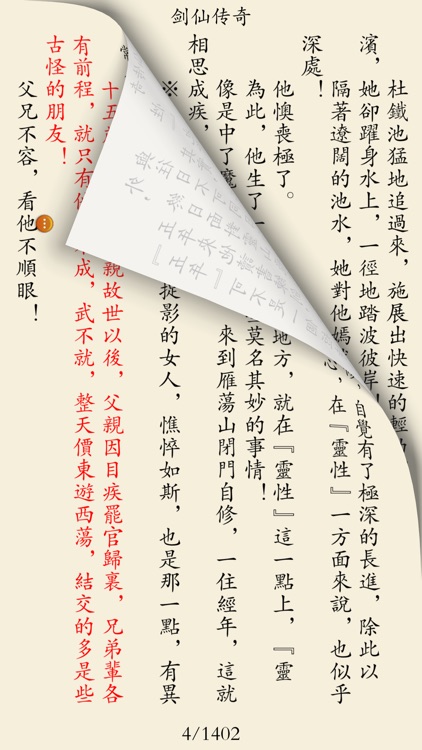 剑仙传奇
杜鐵池猛地追過來，施展出快速的輕
濱，她卻躍身水上，一徑地踏波彼岸！
自覺有了極深的長進，除此以
隔著遼闊的池水，她對他嫣
，在『靈性』一方面來說，也似乎
深處！
他懊喪極了。
地方，就在『靈性』這一點上，『靈
為此，他生了一
莫名其妙的事情！
像是中了魔
來到雁蕩山閉門自修，一住經年，這就
相思成疾，
※
捉影的女人，憔悴如斯，也是那一點，有異
十五
親故世以後，父親因目疾罷官歸裏，兄弟輩各
有前程，就只有
成，武不就，整天價東遊西蕩，結交的多是些
古怪的朋友！
父兄不容，看他不順眼！
4/1402